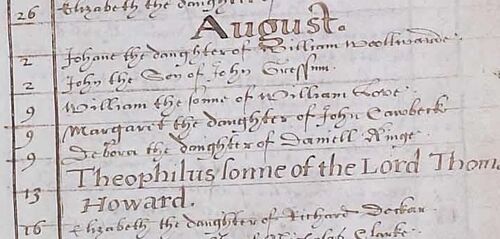 26 Elizabeth the daughter of
August.
2 Johane the daughter of William Woollwarde.
2 John the Son of John Gressum.
9 William the sonne of William Love.
9 Margaret the daughter of John Cawbeck
9 Debora the daughter of Daniell Ringe
Theophilus sonne of the Lord Thom
13 Howard.
16 Elizabeth the daughter of Richard Deckar
Clarke